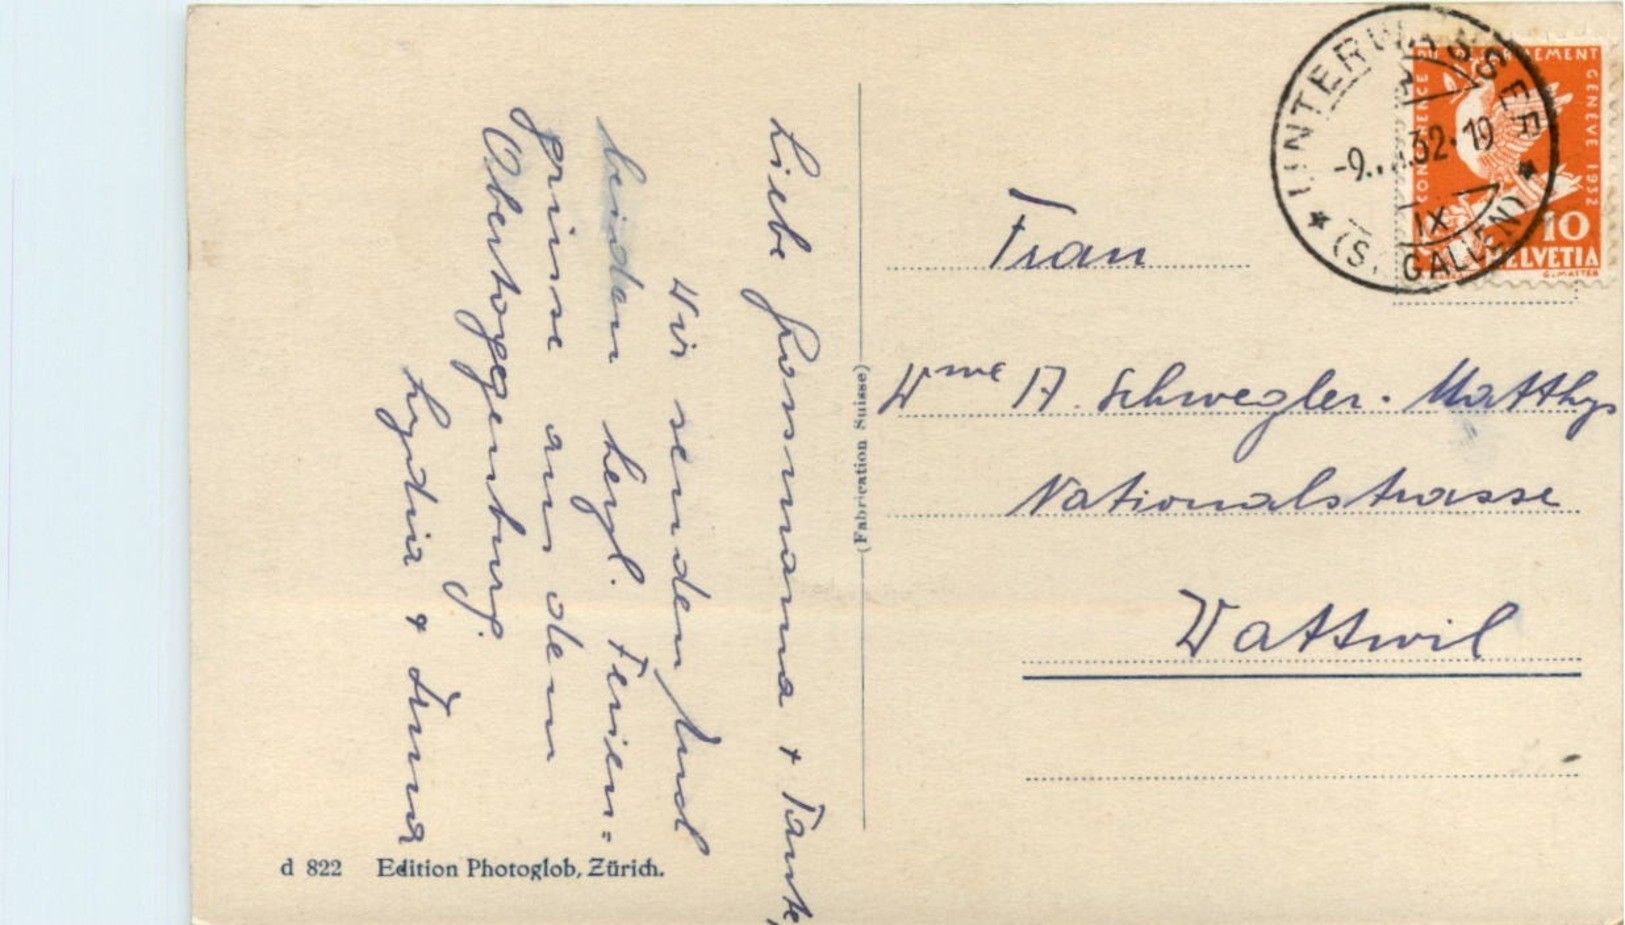 Liebe Grossmama + Tante,
Wir senden Euch
beiden herzl. Ferien=
grüsse aus dem
Obertoggenburg.
Lydia + Anna
d 822 Edition Photoglob, Zürich.
(Fabrication Suisse)
UNTERWASSER
-9. 32-19
IX
(S. GALLEN)
CONFÉRENCE DU DÉSARMEMENT GENÈVE 1932
10
HELVETIA
Frau
Wwe A. Schwegler-Matthys
Nationalstrasse
Wattwil